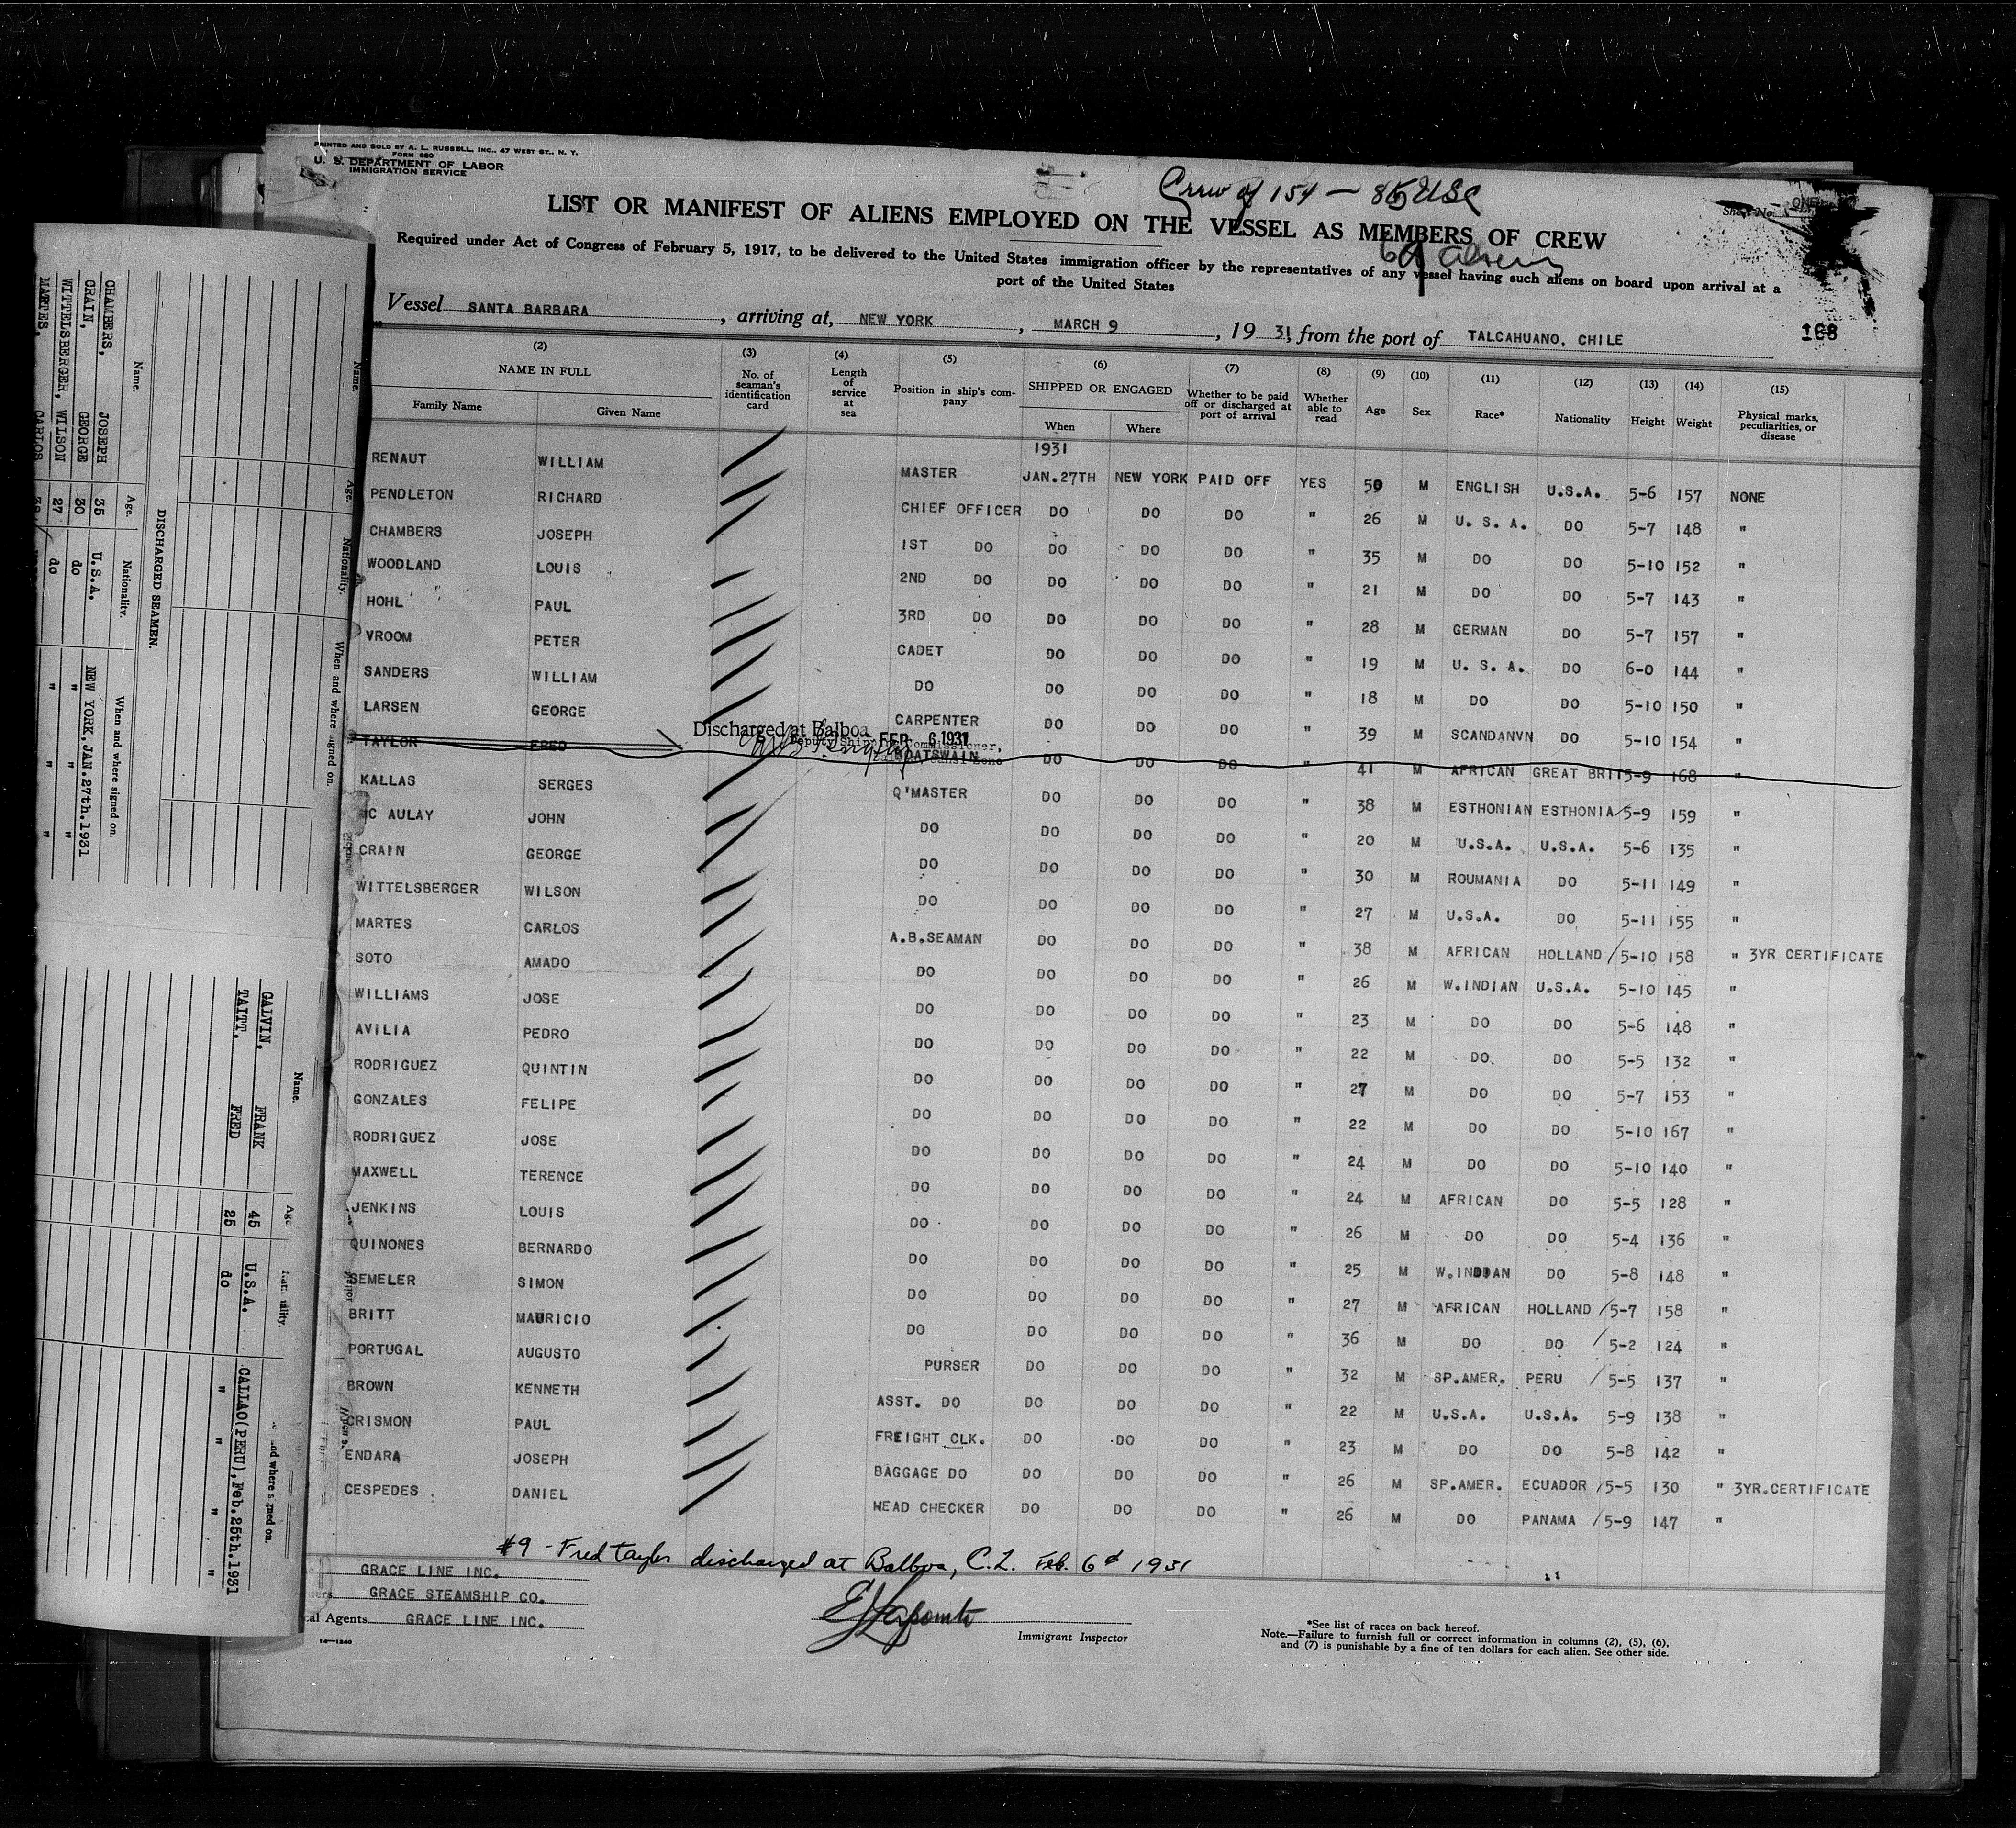 PRINTED AND SOLD BY A. L. RUSSELL, INC., 47 WEST ST., N. Y.
FORM 680
U. S. DEPARTMENT OF LABOR
IMMIGRATION SERVICE
Crew of 154 — 85 USC
69 aliens
Sheet No. ONE
LIST OR MANIFEST OF ALIENS EMPLOYED ON THE VESSEL AS MEMBERS OF CREW
Required under Act of Congress of February 5, 1917, to be delivered to the United States immigration officer by the representatives of any vessel having such aliens on board upon arrival at a
port of the United States
Vessel SANTA BARBARA, arriving at, NEW YORK, MARCH 9, 1931, from the port of TALCAHUANO, CHILE 168
(2) (3) (4) (5) (6) (7) (8) (9) (10) (11) (12) (13) (14) (15)
NAME IN FULL Family Name Given Name No. of seaman's identification card Length of service at sea Position in ship's company SHIPPED OR ENGAGED When Where Whether to be paid off or discharged at port of arrival Whether able to read Age Sex Race* Nationality Height Weight Physical marks, peculiarities, or disease
1931
RENAUT WILLIAM MASTER JAN.27TH NEW YORK PAID OFF YES 50 M ENGLISH U.S.A. 5-6 157 NONE
PENDLETON RICHARD CHIEF OFFICER DO DO DO " 26 M U. S. A. DO 5-7 148 "
CHAMBERS JOSEPH 1ST DO DO DO DO " 35 M DO DO 5-10 152 "
WOODLAND LOUIS 2ND DO DO DO DO " 21 M DO DO 5-7 143 "
HOHL PAUL 3RD DO DO DO DO " 28 M GERMAN DO 5-7 157 "
VROOM PETER CADET DO DO DO " 19 M U. S. A. DO 6-0 144 "
SANDERS WILLIAM DO DO DO DO " 18 M DO DO 5-10 150 "
LARSEN GEORGE CARPENTER DO DO DO " 39 M SCANDANVN DO 5-10 154 "
Discharged at Balboa FEB 6 1931
Deputy Shipping Commissioner,
TAYLOR FRED BOATSWAIN DO DO DO " 41 M AFRICAN GREAT BRIT 5-9 168 "
KALLAS SERGES Q'MASTER DO DO DO " 38 M ESTHONIAN ESTHONIA 5-9 159 "
MC AULAY JOHN DO DO DO DO " 20 M U.S.A. U.S.A. 5-6 135 "
CRAIN GEORGE DO DO DO DO " 30 M ROUMANIA DO 5-11 149 "
WITTELSBERGER WILSON DO DO DO DO " 27 M U.S.A. DO 5-11 155 "
MARTES CARLOS A.B.SEAMAN DO DO DO " 38 M AFRICAN HOLLAND 5-10 158 " 3YR CERTIFICATE
SOTO AMADO DO DO DO DO " 26 M W.INDIAN U.S.A. 5-10 145 "
WILLIAMS JOSE DO DO DO DO " 23 M DO DO 5-6 148 "
AVILIA PEDRO DO DO DO DO " 22 M DO DO 5-5 132 "
RODRIGUEZ QUINTIN DO DO DO DO " 27 M DO DO 5-7 153 "
GONZALES FELIPE DO DO DO DO " 22 M DO DO 5-10 167 "
RODRIGUEZ JOSE DO DO DO DO " 24 M DO DO 5-10 140 "
MAXWELL TERENCE DO DO DO DO " 24 M AFRICAN DO 5-5 128 "
JENKINS LOUIS DO DO DO DO " 26 M DO DO 5-4 136 "
QUINONES BERNARDO DO DO DO DO " 25 M W.INDIAN DO 5-8 148 "
SEMELER SIMON DO DO DO DO " 27 M AFRICAN HOLLAND 5-7 158 "
BRITT MAURICIO DO DO DO DO " 36 M DO DO 5-2 124 "
PORTUGAL AUGUSTO PURSER DO DO DO " 32 M SP.AMER. PERU 5-5 137 "
BROWN KENNETH ASST. DO DO DO DO " 22 M U.S.A. U.S.A. 5-9 138 "
CRISMON PAUL FREIGHT CLK. DO DO DO " 23 M DO DO 5-8 142 "
ENDARA JOSEPH BAGGAGE DO DO DO DO " 26 M SP.AMER. ECUADOR 5-5 130 " 3YR.CERTIFICATE
CESPEDES DANIEL HEAD CHECKER DO DO DO " 26 M DO PANAMA 5-9 147 "
#9 - Fred Taylor discharged at Balboa, C.Z. Feb. 6th 1931
GRACE LINE INC.
GRACE STEAMSHIP CO.
al Agents GRACE LINE INC.
14—1240
Immigrant Inspector
*See list of races on back hereof.
Note.—Failure to furnish full or correct information in columns (2), (5), (6),
and (7) is punishable by a fine of ten dollars for each alien. See other side.
DISCHARGED SEAMEN.
Name. Age. Nationality. When and where signed on.
CHAMBERS, JOSEPH 35 U.S.A. NEW YORK, JAN.27th.1931
CRAIN, GEORGE 30 do " "
WITTELSBERGER, WILSON 27 do " "
MARTES, CARLOS
Name. Age. Nationality. When and where signed on.
Name. Age. Nationality. and where signed on.
GALVIN, FRANK 45 U.S.A. CALLAO(PERU), Feb.25th.1931
TAITT, FRED 25 do " " " "